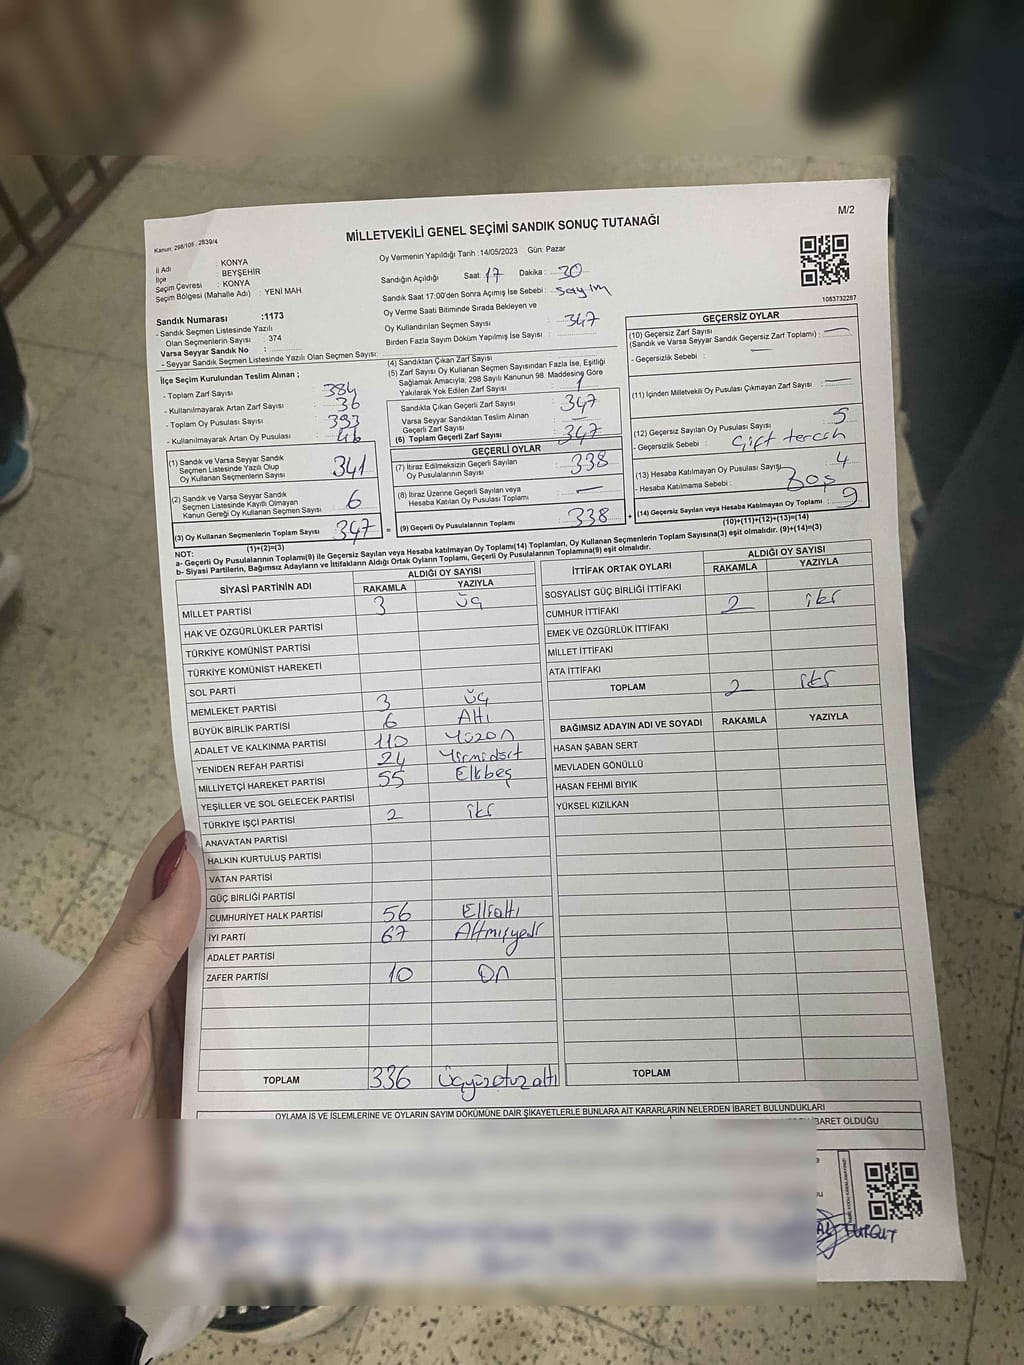 Kanun: 298/105, 2839/4
MİLLETVEKİLİ GENEL SEÇİMİ SANDIK SONUÇ TUTANAĞI
M/2
İl Adı : KONYA
İlçe : BEYŞEHİR
Seçim Çevresi : KONYA
Seçim Bölgesi (Mahalle Adı) : YENİ MAH.
Sandık Numarası :1173
- Sandık Seçmen Listesinde Yazılı
Olan Seçmenlerin Sayısı : 374
Varsa Seyyar Sandık No :
- Seyyar Sandık Seçmen Listesinde Yazılı Olan Seçmen Sayısı:
Oy Vermenin Yapıldığı Tarih :14/05/2023 Gün: Pazar
Sandığın Açıldığı Saat: 17 Dakika : 30
Sandık Saat 17:00'den Sonra Açımış İse Sebebi : sayım
Oy Verme Saati Bitiminde Sırada Bekleyen ve
Oy Kullandırılan Seçmen Sayısı : 347
Birden Fazla Sayım Döküm Yapılmış İse Sayısı :
1083732287
İlçe Seçim Kurulundan Teslim Alınan ;
- Toplam Zarf Sayısı : 384
- Kullanılmayarak Artan Zarf Sayısı : 36
- Toplam Oy Pusulası Sayısı : 393
- Kullanılmayarak Artan Oy Pusulası : 46
(1) Sandık ve Varsa Seyyar Sandık
Seçmen Listesinde Yazılı Olup
Oy Kullanan Seçmenlerin Sayısı : 341
(2) Sandık ve Varsa Seyyar Sandık
Seçmen Listesinde Kayıtlı Olmayan
Kanun Gereği Oy Kullanan Seçmen Sayısı : 6
(3) Oy Kullanan Seçmenlerin Toplam Sayısı : 347
(1)+(2)=(3)
(4) Sandıktan Çıkan Zarf Sayısı
(5) Zarf Sayısı Oy Kullanan Seçmen Sayısından Fazla İse, Eşitliği
Sağlamak Amacıyla; 298 Sayılı Kanunun 98. Maddesine Göre
Yakılarak Yok Edilen Zarf Sayısı : 1
Sandıkta Çıkan Geçerli Zarf Sayısı : 347
Varsa Seyyar Sandıktan Teslim Alınan
Geçerli Zarf Sayısı : —
(6) Toplam Geçerli Zarf Sayısı : 347
GEÇERLİ OYLAR
(7) İtiraz Edilmeksizin Geçerli Sayılan
Oy Pusulalarının Sayısı : 338
(8) İtiraz Üzerine Geçerli Sayılan veya
Hesaba Katılan Oy Pusulası Toplamı : —
= (9) Geçerli Oy Pusulalarının Toplamı : 338 +
GEÇERSİZ OYLAR
(10) Geçersiz Zarf Sayısı
(Sandık ve Varsa Seyyar Sandık Geçersiz Zarf Toplamı) : —
- Geçersizlik Sebebi : —
(11) İçinden Milletvekili Oy Pusulası Çıkmayan Zarf Sayısı : —
(12) Geçersiz Sayılan Oy Pusulası Sayısı : 5
- Geçersizlik Sebebi : Çift tercih
(13) Hesaba Katılmayan Oy Pusulası Sayısı : 4
- Hesaba Katılmama Sebebi : Boş
(14) Geçersiz Sayılan veya Hesaba Katılmayan Oy Toplamı : 9
(10)+(11)+(12)+(13)=(14)
NOT:
a- Geçerli Oy Pusulalarının Toplamı(9) ile Geçersiz Sayılan veya Hesaba katılmayan Oy Toplamı(14) Toplamları, Oy Kullanan Seçmenlerin Toplam Sayısına(3) eşit olmalıdır. (9)+(14)=(3)
b- Siyasi Partilerin, Bağımsız Adayların ve İttifakların Aldığı Ortak Oyların Toplamı, Geçerli Oy Pusulalarının Toplamına(9) eşit olmalıdır.
SİYASİ PARTİNİN ADI ALDIĞI OY SAYISI
RAKAMLA YAZIYLA
MİLLET PARTİSİ 3 Üç
HAK VE ÖZGÜRLÜKLER PARTİSİ
TÜRKİYE KOMÜNİST PARTİSİ
TÜRKİYE KOMÜNİST HAREKETİ
SOL PARTİ
MEMLEKET PARTİSİ 3 Üç
BÜYÜK BİRLİK PARTİSİ 6 Altı
ADALET VE KALKINMA PARTİSİ 110 Yüzon
YENİDEN REFAH PARTİSİ 24 Yirmidört
MİLLİYETÇİ HAREKET PARTİSİ 55 Ellibeş
YEŞİLLER VE SOL GELECEK PARTİSİ
TÜRKİYE İŞÇİ PARTİSİ 2 iki
ANAVATAN PARTİSİ
HALKIN KURTULUŞ PARTİSİ
VATAN PARTİSİ
GÜÇ BİRLİĞİ PARTİSİ
CUMHURİYET HALK PARTİSİ 56 Ellialtı
İYİ PARTİ 67 Altmışyedi
ADALET PARTİSİ
ZAFER PARTİSİ 10 On
TOPLAM 336 Üçyüzotuzaltı
İTTİFAK ORTAK OYLARI ALDIĞI OY SAYISI
RAKAMLA YAZIYLA
SOSYALİST GÜÇ BİRLİĞİ İTTİFAKI
CUMHUR İTTİFAKI 2 iki
EMEK VE ÖZGÜRLÜK İTTİFAKI
MİLLET İTTİFAKI
ATA İTTİFAKI
TOPLAM 2 iki
BAĞIMSIZ ADAYIN ADI VE SOYADI RAKAMLA YAZIYLA
HASAN ŞABAN SERT
MEVLADEN GÖNÜLLÜ
HASAN FEHMI BIYIK
YÜKSEL KIZILKAN
TOPLAM
OYLAMA İŞ VE İŞLEMLERİNE VE OYLARIN SAYIM DÖKÜMÜNE DAİR ŞİKAYETLERLE BUNLARA AİT KARARLARIN NELERDEN İBARET BULUNDUKLARI
İBARET OLDUĞU
TURGUT